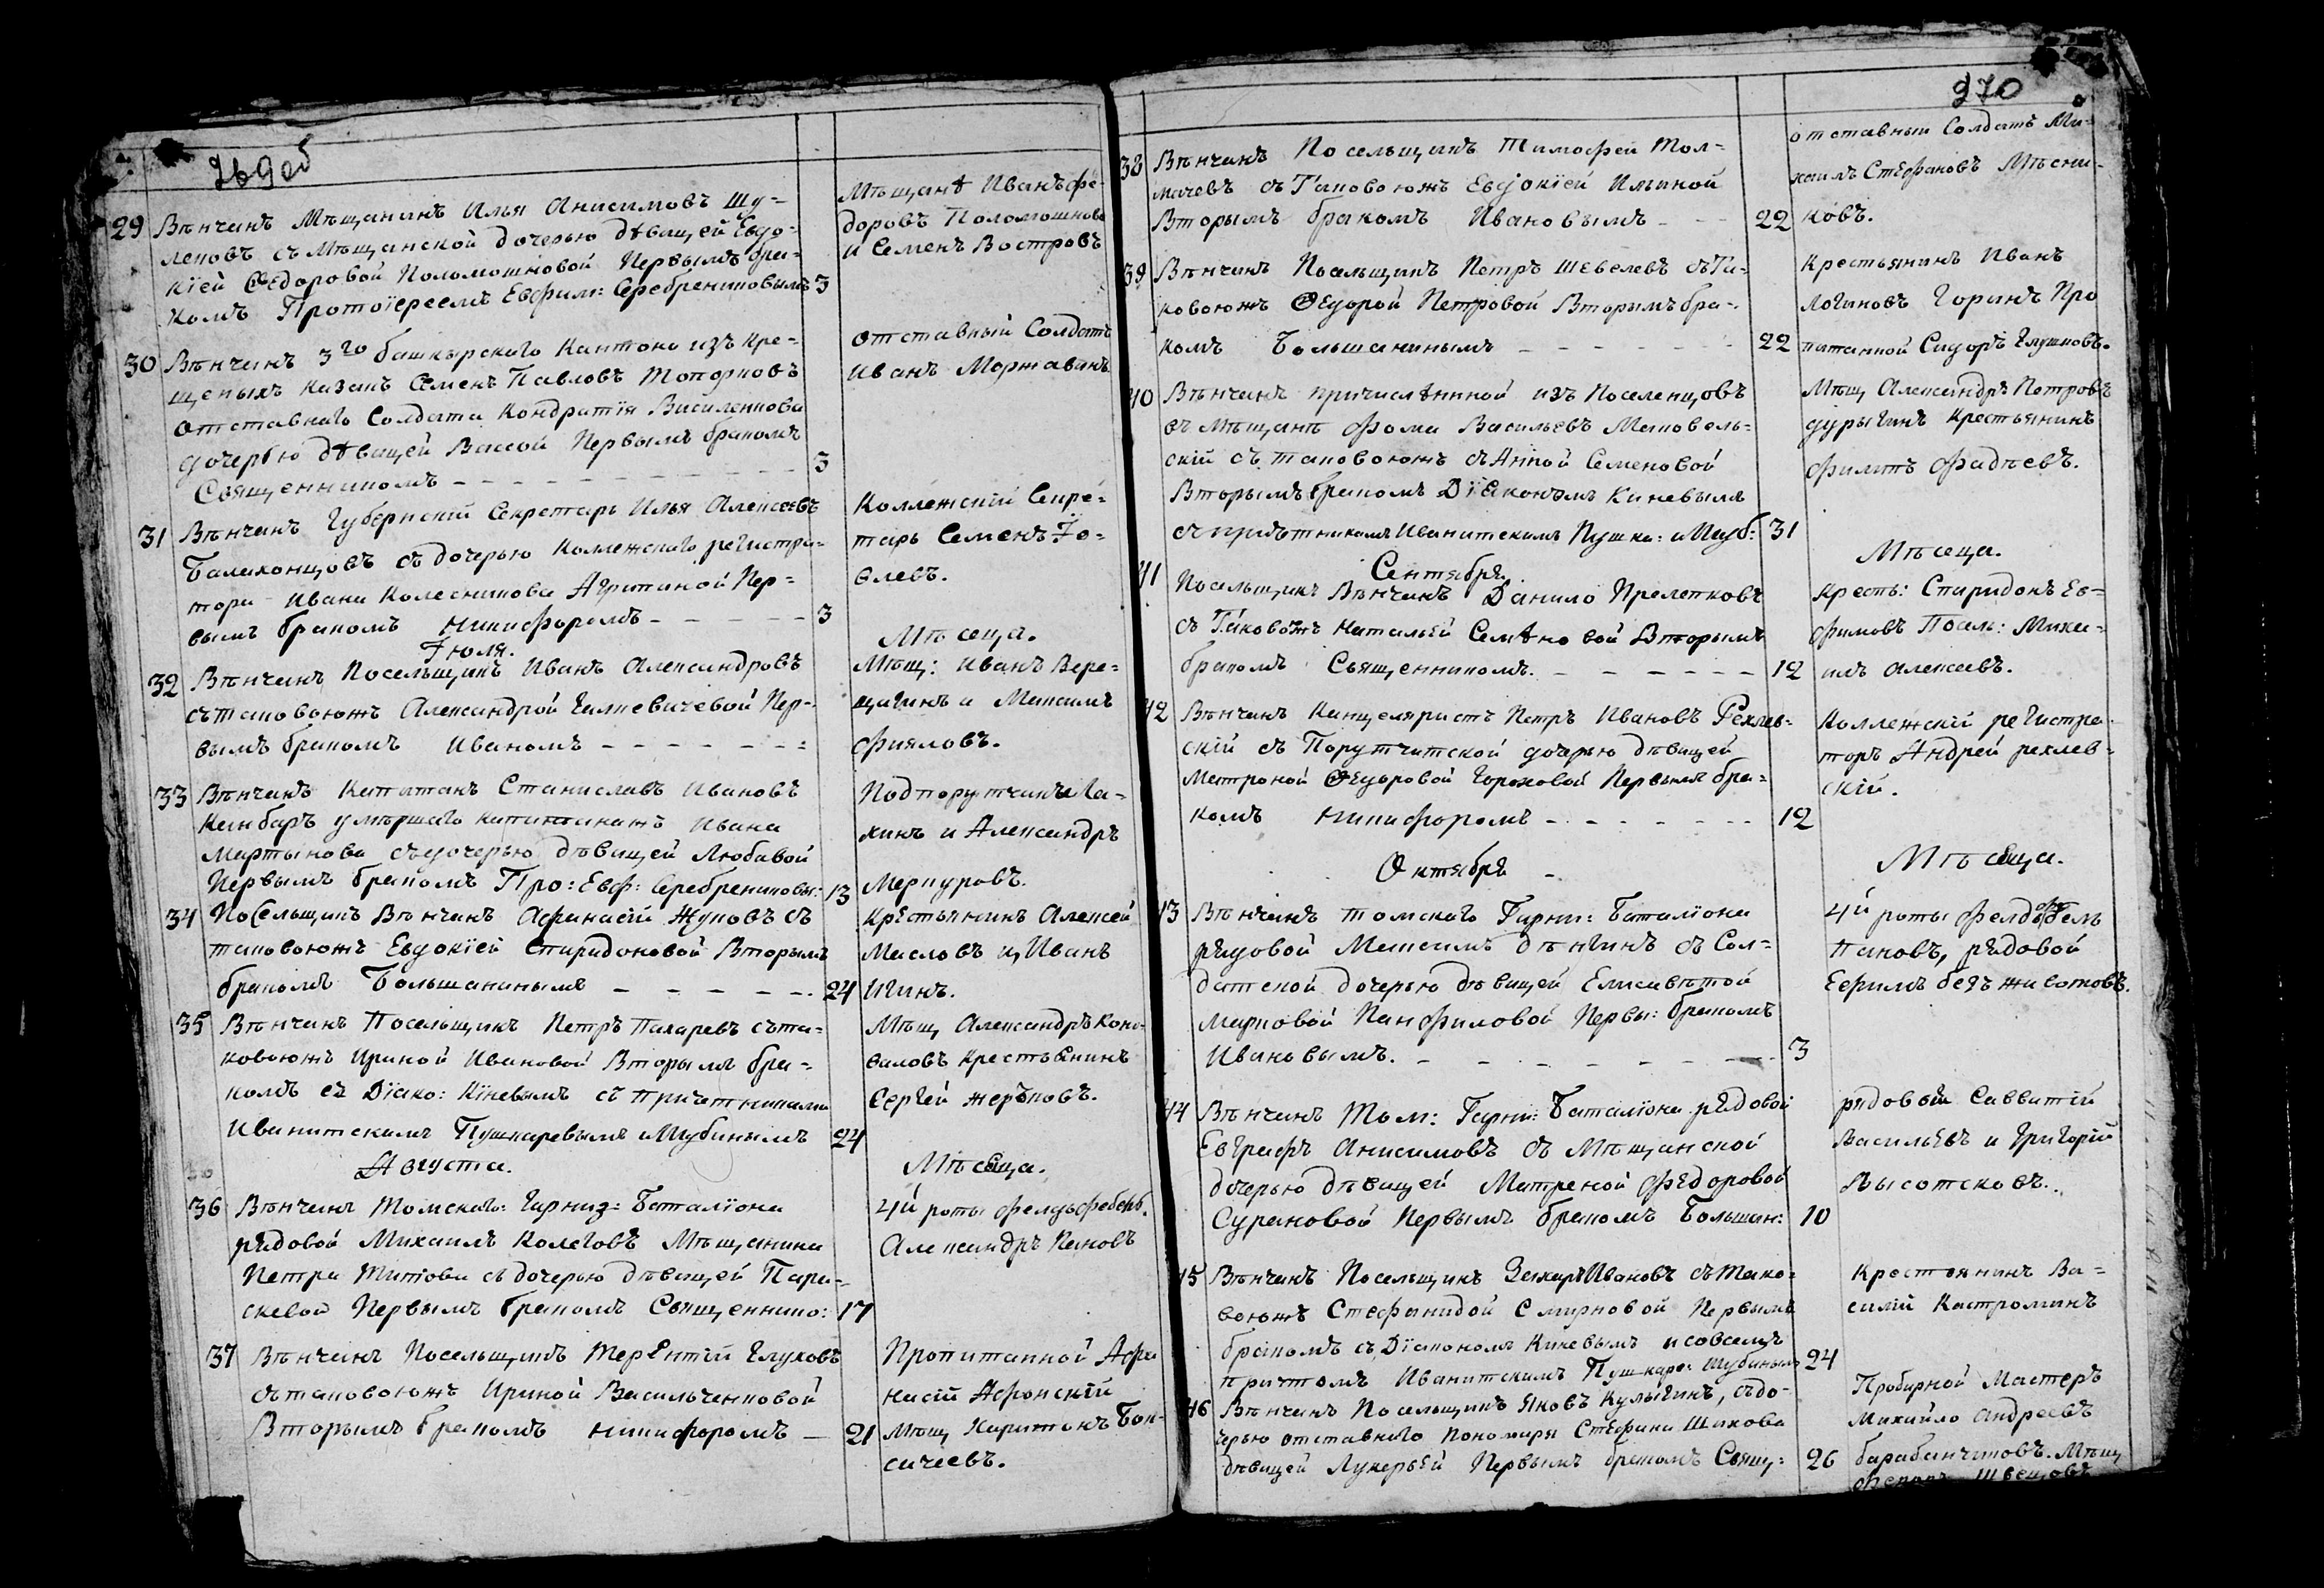 269 об
29 Вѣнчанъ Мѣщанинъ Илья Анисимовъ Шу-
леповъ съ Мѣщанской дочерью дѣвицей Евдо-
кіей Ѳедоровой Поломошновой Первымъ бра-
комъ Протоіереемъ Евфим: Серебрениковымъ 3
Мѣщанѣ Иванъ Фе-
доровъ Поломошнова
и Семенъ Востровъ
30 Вѣнчанъ 3го башкырскаго Кантона изъ кре-
щеныхъ казакъ Семенъ Павловъ Топорковъ
отставнаго Солдата Кондратія Василенкова
дочерью дѣвицей Вассой Первымъ бракомъ
Священникомъ - - - 3
отставный Солдатъ
Иванъ Моржавинъ
31 Вѣнчанъ Губернскій Секретарь Илья Алексеевъ
Балахонцовъ съ дочерью Коллежскаго регистра-
тора Ивана Колесникова Агрипиной Пер-
вымъ бракомъ Никифоромъ - - - 3
Коллежскій Секре-
тарь Семенъ
влевъ.
Іюля. Мѣсеца.
32 Вѣнчанъ Посельщикъ Иванъ Александровъ
съ таковоюжъ Александрой Пер-
вымъ бракомъ Иваномъ - - -
Мѣщ: Иванъ Вере-
щагинъ и Максимъ
Фияловъ.
33 Вѣнчанъ Капитанъ Станиславъ Ивановъ
Канбаръ умершаго Ивана
Мартынова съ дочерью дѣвицей Любавой
Первымъ бракомъ Про: Евф: Серебрениковы: 13
Подпорутчикъ Ла-
хинъ и Александръ
Меркуровъ.
34 Посельщикъ Вѣнчанъ Афанасій Жуковъ съ
таковоюжъ Евдокіей Спиридоновой Вторымъ
бракомъ Большанинымъ - - - 24
Крестьянинъ Алексей
Масловъ и Иванъ
Игинъ.
35 Вѣнчанъ Посельщикъ Петръ Пахаревъ съ та-
ковоюжъ Ириной Ивановой Вторымъ бра-
комъ съ Діако: Кіневымъ съ причетниками
Иванитскимъ Пушкаревымъ и Шубинымъ 24
Мѣщ Александръ Коно-
валовъ Крестьянинъ
Сергей
Августа. Мѣсеца.
36 Вѣнчанъ Томскаго: Гарниз: Баталіона
рядовой Михаилъ Колеговъ Мѣщанина
Петра Титова съ дочерью дѣвицей Пара-
скевой Первымъ бракомъ Священнико: 17
4й роты Фельдфебель
Александръ Пановъ
37 Вѣнчанъ Посельщикъ Терентій Глуховъ
съ таковоюжъ Ириной Васильченковой
Вторымъ бракомъ Никифоромъ - 21
Пропитанной Афа
насій Афонскій
Мѣщ Харитонъ Бок-
сачеевъ.
270
38 Вѣнчанъ Посельщикъ Тимофей Тол-
мачевъ съ Таковоюжъ Евдокіей Ильиной
Вторымъ бракомъ Ивановымъ - - 22
отставный Солдатъ Ми-
хаилъ Стефановъ Мѣсни-
ковъ.
39 Вѣнчанъ Посельщикъ Петръ Шевелевъ съ Та-
ковоюжъ Ѳедорой Петровой Вторымъ бра-
комъ Большанинымъ - - - 22
Крестьянинъ Иванъ
Логиновъ Горинъ Про
питанной Сидоръ Глушковъ.
40 Вѣнчанъ причисленной изъ Поселенцовъ
въ Мѣщанѣ Фома Васильевъ Маковель-
скій съ таковоюжъ съ Анной Семеновой
Вторымъ бракомъ Діакономъ Киневымъ
съ Иванитскимъ Пушка: и Шуб: 31
Мѣщ Александръ Петровъ
дурыгинъ Крестьянинъ
Филипъ Фадѣевъ.
Сентября Мѣсеца.
41 Посельщикъ Вѣнчанъ Данило Прелепковъ
съ Таковожъ Натальей Семѣновой Вторымъ
бракомъ Священникомъ. - - - 12
Кресть: Спиридонъ Ев-
фимовъ Посель: Миха-
илъ Алексеевъ.
42 Вѣнчанъ Канцеляристъ Петръ Ивановъ Рехлев-
скій съ Порутчитской дочерью дѣвицей
Матроной Ѳедоровой Гороховой Первымъ бра-
комъ Никифоромъ - - - 12
Коллежскій регистра-
торъ Андрей рехлев-
скій.
Октября Мѣсеца.
43 Вѣнчанъ томскаго Гарни: Баталіона
рядовой Максимъ дѣнгинъ съ Сол-
датской дочерью дѣвицей Елисавѣтой
Марковой Панфиловой Первы: бракомъ
Ивановымъ. - - - 3
4й роты
Пановъ, рядовой
Ефимъ безживотовъ.
44 Вѣнчанъ Том: Гарни: Баталіона рядовой
Евграфъ Анисимовъ съ Мѣщанской
дочерью дѣвицей Матреной Федоровой
Сурановой Первымъ бракомъ Большан: 10
рядовой Савватій
Васильевъ и Григорій
Высотсковъ.
45 Вѣнчанъ Посельщикъ Захаръ Ивановъ съ Тако-
воюжъ Стефанидой Смирновой Первымъ
бракомъ съ Діакономъ Киневымъ и совсемъ
притомъ Иванитскимъ Пушкаре: Шубинымъ 24
Крестьянинъ Ва-
силій Кастроминъ
46 Вѣнчанъ Посельщикъ Яковъ Кулыгинъ, съ до-
черью отставнаго пономаря Стефана Шихова
дѣвицей Лукерьей Первымъ бракомъ Свящ: 26
Пробирной Мастеръ
Михайло Андреевъ
барабанчиковъ. Мѣщ
Швецовъ